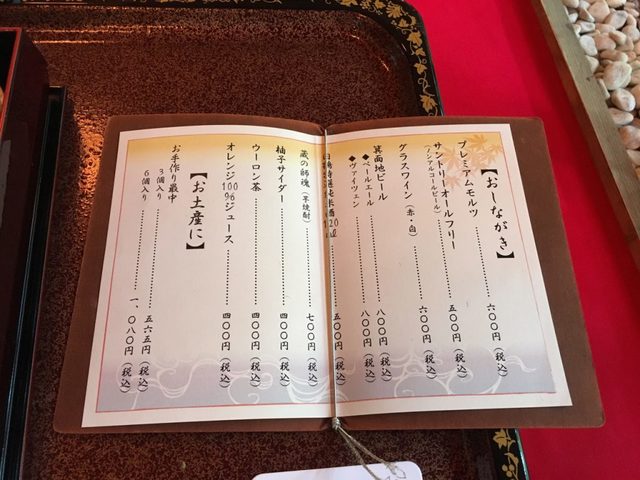 【おしながき】
プレミアムモルツ……………六〇〇円（税込）
サントリーオールフリー……………五〇〇円（税込）
（ノンアルコールビール）
グラスワイン（赤・白）……………六〇〇円（税込）
箕面地ビール
◆ペールエール……………八〇〇円（税込）
◆ヴァイツェン……………八〇〇円（税込）
……………五〇〇円（税込）
蔵の師魂（芋焼酎）……………七〇〇円（税込）
柚子サイダー……………四〇〇円（税込）
ウーロン茶……………四〇〇円（税込）
オレンジ100％ジュース……………四〇〇円（税込）
【お土産に】
お手作り最中
3個入り……………五六五円（税込）
6個入り……………一、〇八〇円（税込）